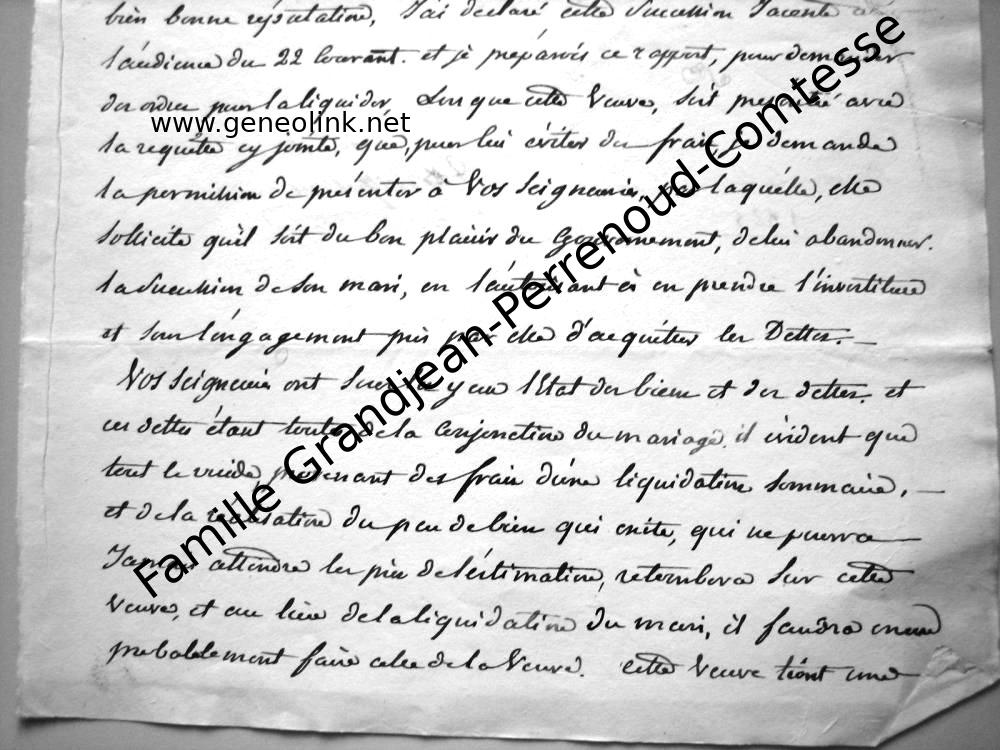 bien bonne réputation, J'ai declaré cette Succession Jacente à
l'audience du 22 Courant. et je préparois ce rapport, pour demander
des ordres pour la liquider, Lorsque cette Veuve, s'est presentée avec
www.geneolink.net
la requête cy jointe, que, pour lui éviter des frais, je demande
la permission de présenter à Vos Seigneuries, par laquélle, elle
sollicite qu'il soit du bon plaisir du Gouvernement, de lui abandonner
la Succession de son mari, en l'autorisant à en prendre l'invéstiture
et sous l'engagement pris par elle d'acquitter les Dettes.
Vos Seigneuries ont sous les yeux l'Etat des biens et des dettes, et
ces dettes étant toutes de la Conjonction du mariage, il évident que
tout le vuide, provenant des frais d'une liquidation sommaire,
et de la réalisation du peu de bien qui existe, qui ne pourra
Jamais attendre les prix de l'éstimation, retombera sur cette
Veuve, et au lieu de la liquidation du mari, il faudra encore
probablement faire celle de la Veuve. Cette Veuve tient une
Famille Grandjean-Perrenoud-Comtesse